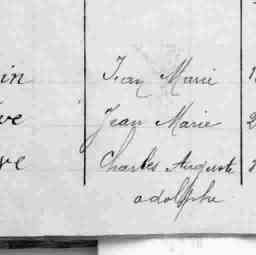 in Jean Marie 1
ve Jean Marie 2
ve Charles Auguste
adolphe